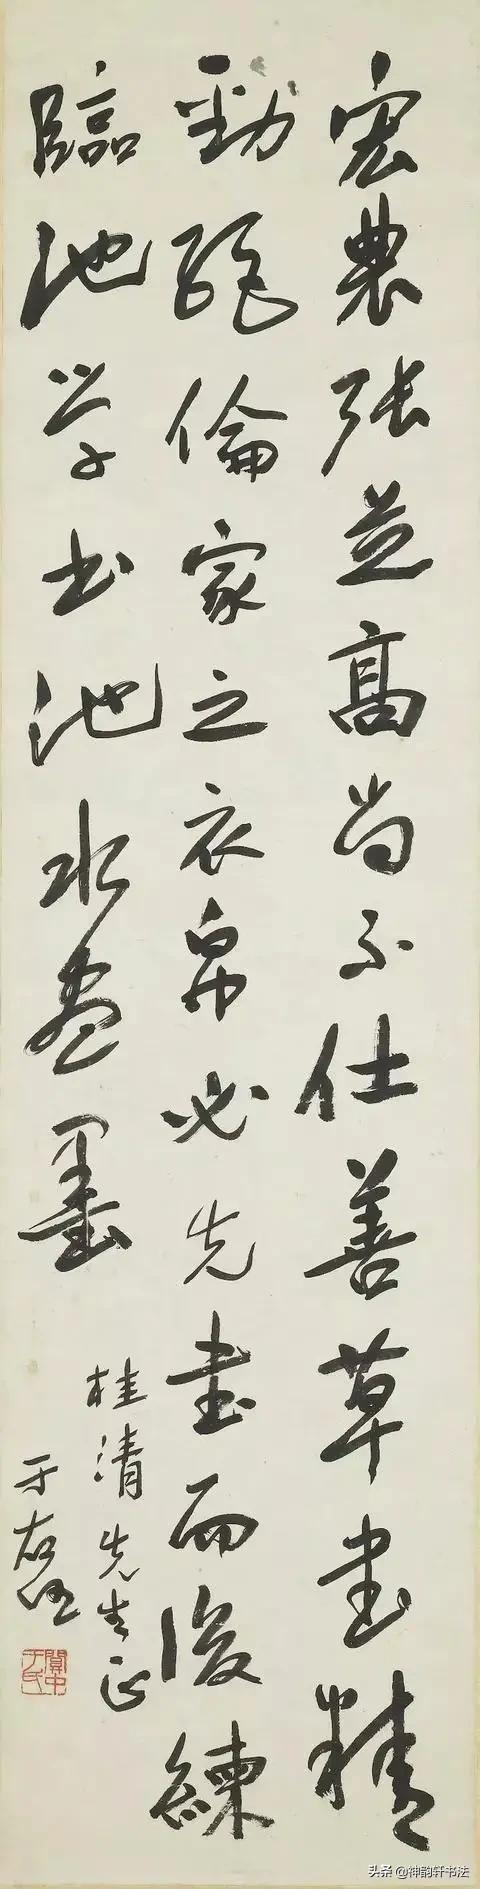 宏農張芝高尚不仕善草書精
勁絕倫家之衣帛必先書而後練
臨池學書池水盡墨
桂清先生正
于右任
關中于氏
头条 @神韵轩书法